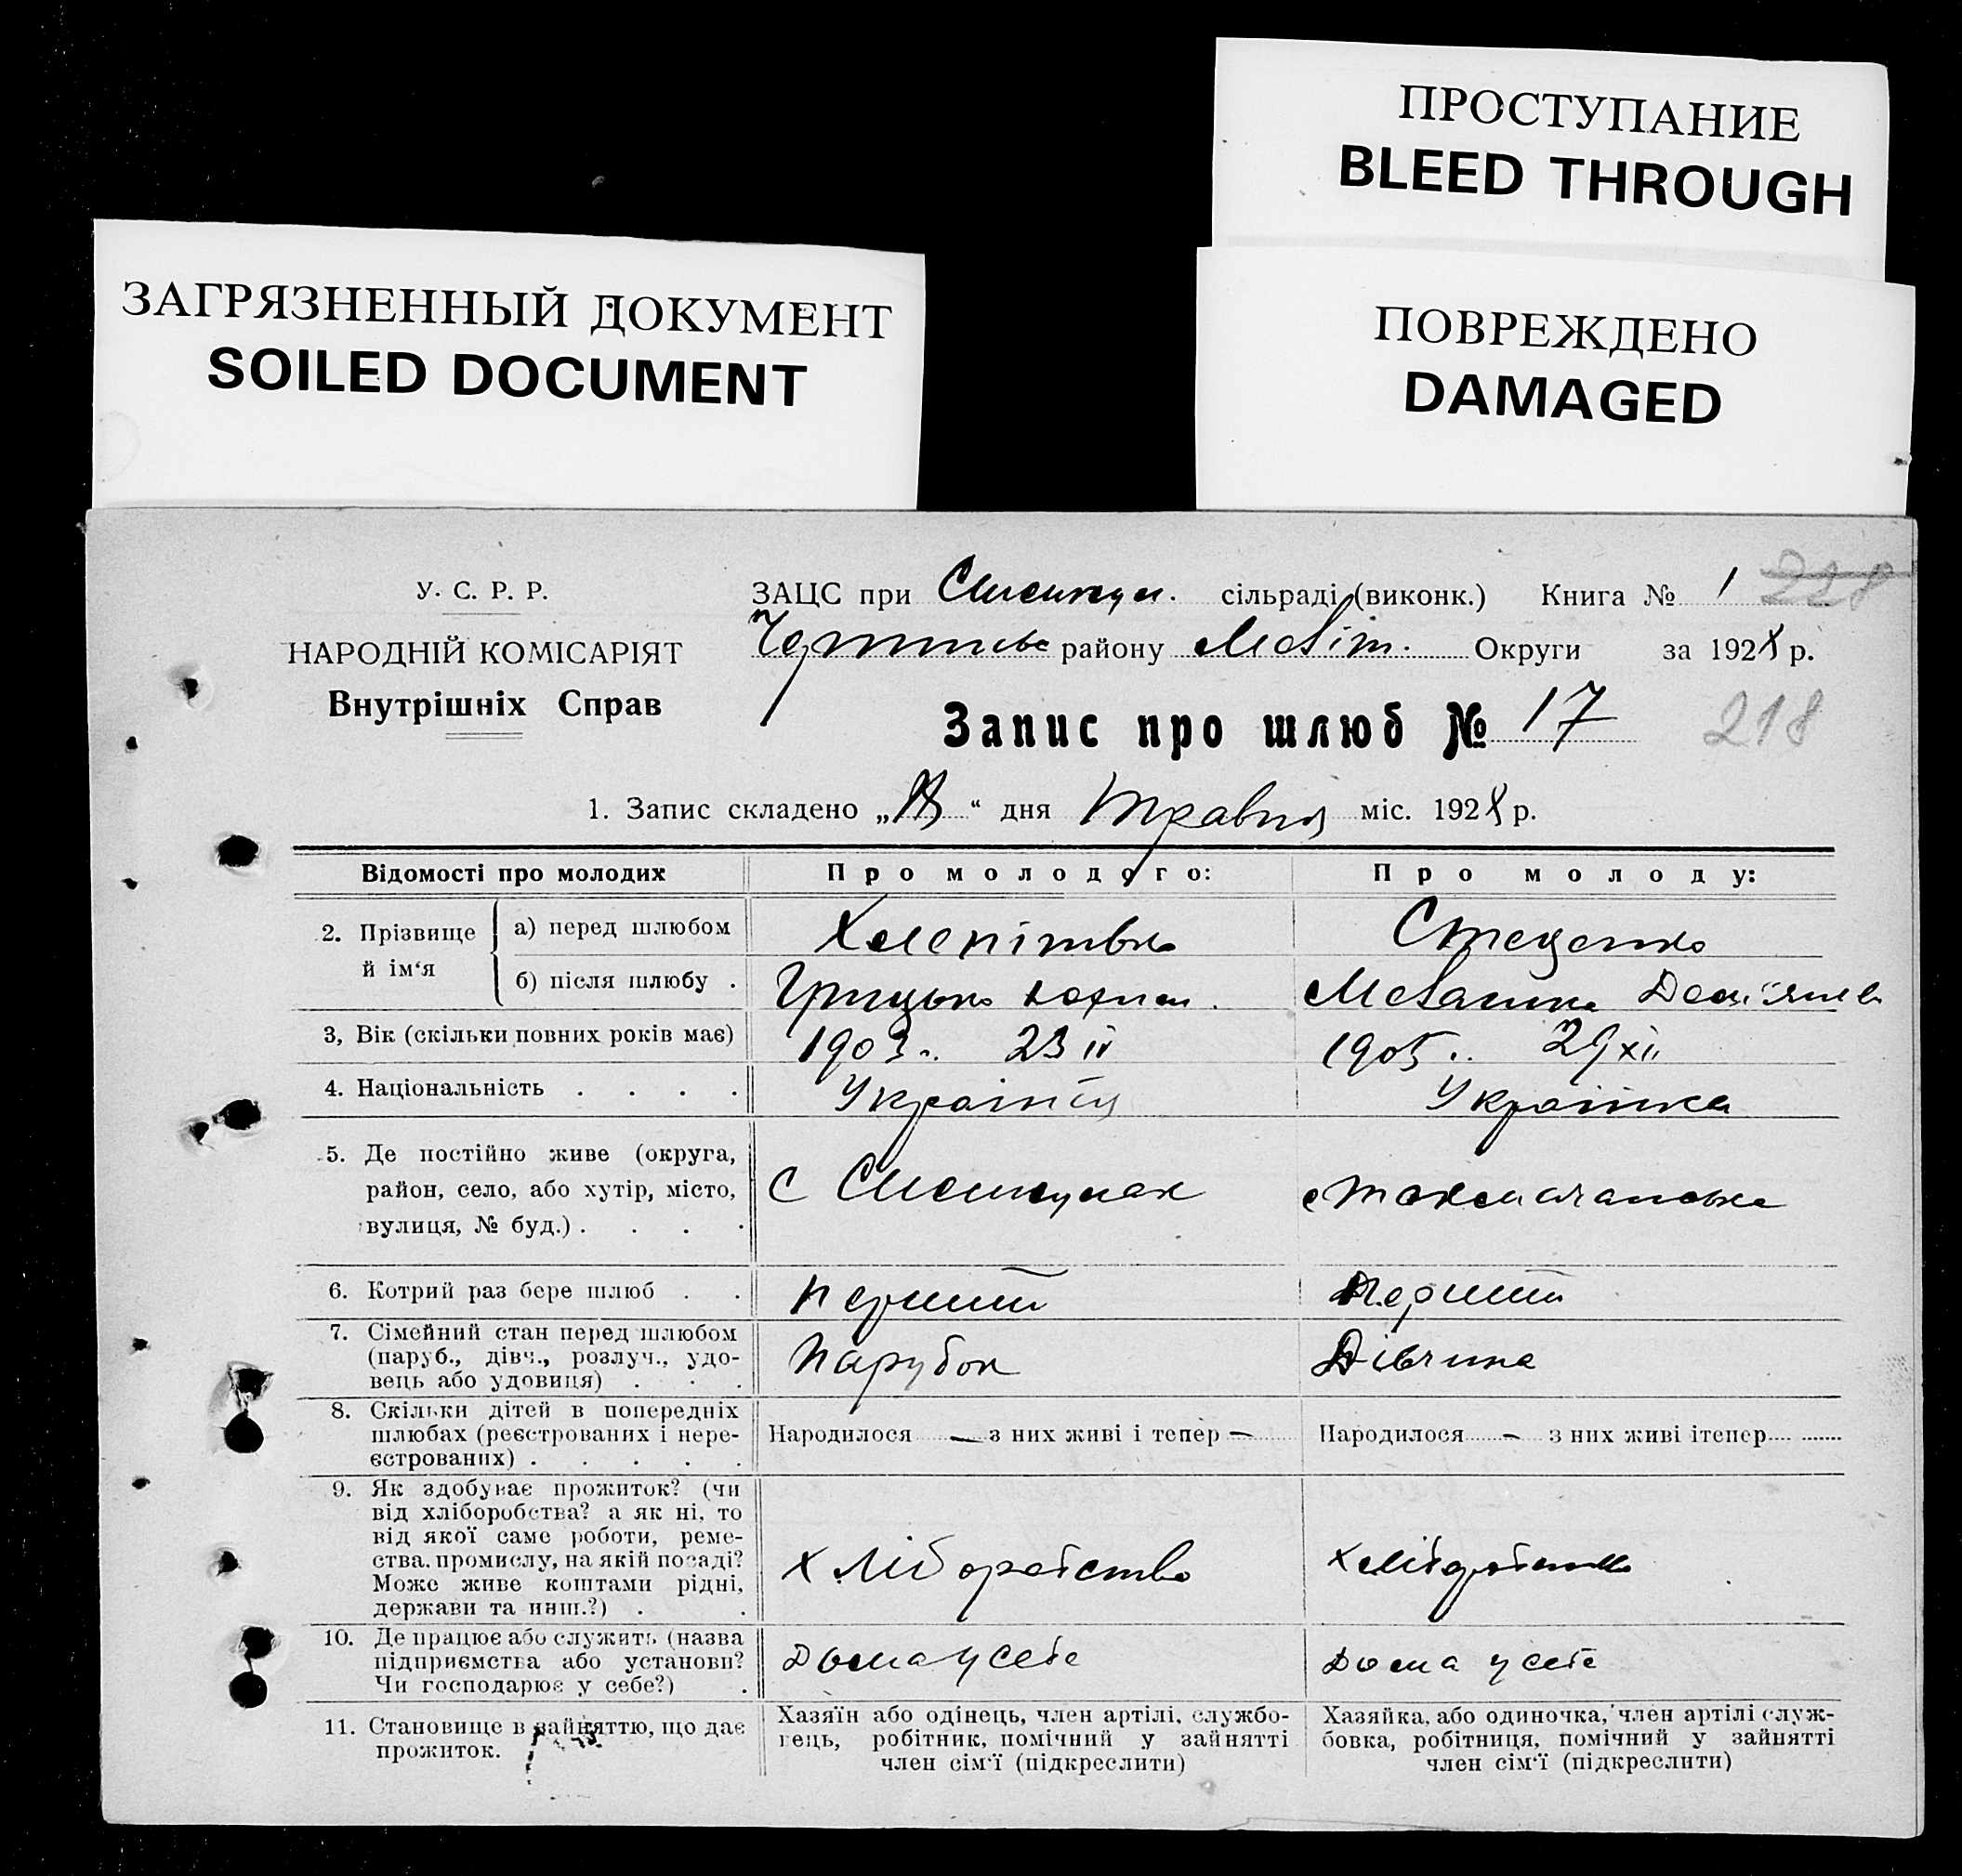 ПРОСТУПАНИЕ
BLEED THROUGH
ЗАГРЯЗНЕННЫЙ ДОКУМЕНТ
SOILED DOCUMENT
ПОВРЕЖДЕНО
DAMAGED
У. С. Р. Р.
НАРОДНІЙ КОМІСАРІЯТ
Внутрішніх Справ
ЗАЦС при сільраді (виконк.) Книга № 1 228
району Округи за 192 р.
Запис про шлюб № 17 218
1. Запис складено „ “ дня Травня міс. 192 р.
Відомості про молодих Про молодого: Про молоду:
2. Прізвище й ім‘я
а) перед шлюбом Стеценко
б) після шлюбу . Грицько
3, Вік (скільки повних років має) 1903 23 IV 1905 29 XII
4. Національність . . . . Українець Українка
5. Де постійно живе (округа,
район, село, або хутір, місто,
вулиця, № буд.) . . . .
с
6. Котрий раз бере шлюб . . перший перший
7. Сімейний стан перед шлюбом
(паруб., дівч., розлуч., удо-
вець або удовиця) . . .
Парубок Дівчина
8. Скільки дітей в попередніх
шлюбах (реєстрованих і нере-
єстрованих) . . . . .
Народилося — з них живі і тепер — Народилося - з них живі ітепер
9. Як здобуває прожиток? (чи
від хліборобства? а як ні, то
від якої саме роботи, реме-
ства. промислу, на якій посаді?
Може живе коштами рідні,
держави та инш.?) . .
хліборобство хліборобство
10. Де працює або служить (назва
підприємства або установи?
Чи господарює у себе?) .
Дома у себе Дома у себе
11. Становище в зайняттю, що дає
прожиток.
Хазяїн або одінець, член артілі, службо-
вець, робітник, помічний у зайнятті
член сім‘ї (підкреслити)
Хазяйка, або одиночка, член артілі служ-
бовка, робітниця, помічний у зайнятті
член сім‘ї (підкреслити)